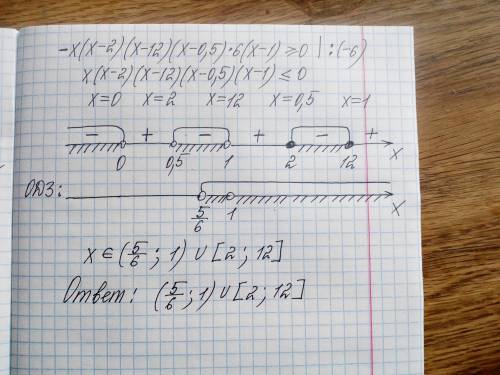 -x(x-2)(x-12)(x-0,5)·6(x-1) ≥ 0 | :(-6)
x(x-2)(x-12)(x-0,5)(x-1) ≤ 0
x=0 x=2 x=12 x=0,5 x=1
- + - + - +
0 0,5 1 2 12 x
ОДЗ:
5/6 1 x
x ∈ (5/6 ; 1) ∪ [2 ; 12]
Ответ: (5/6 ; 1) ∪ [2 ; 12]